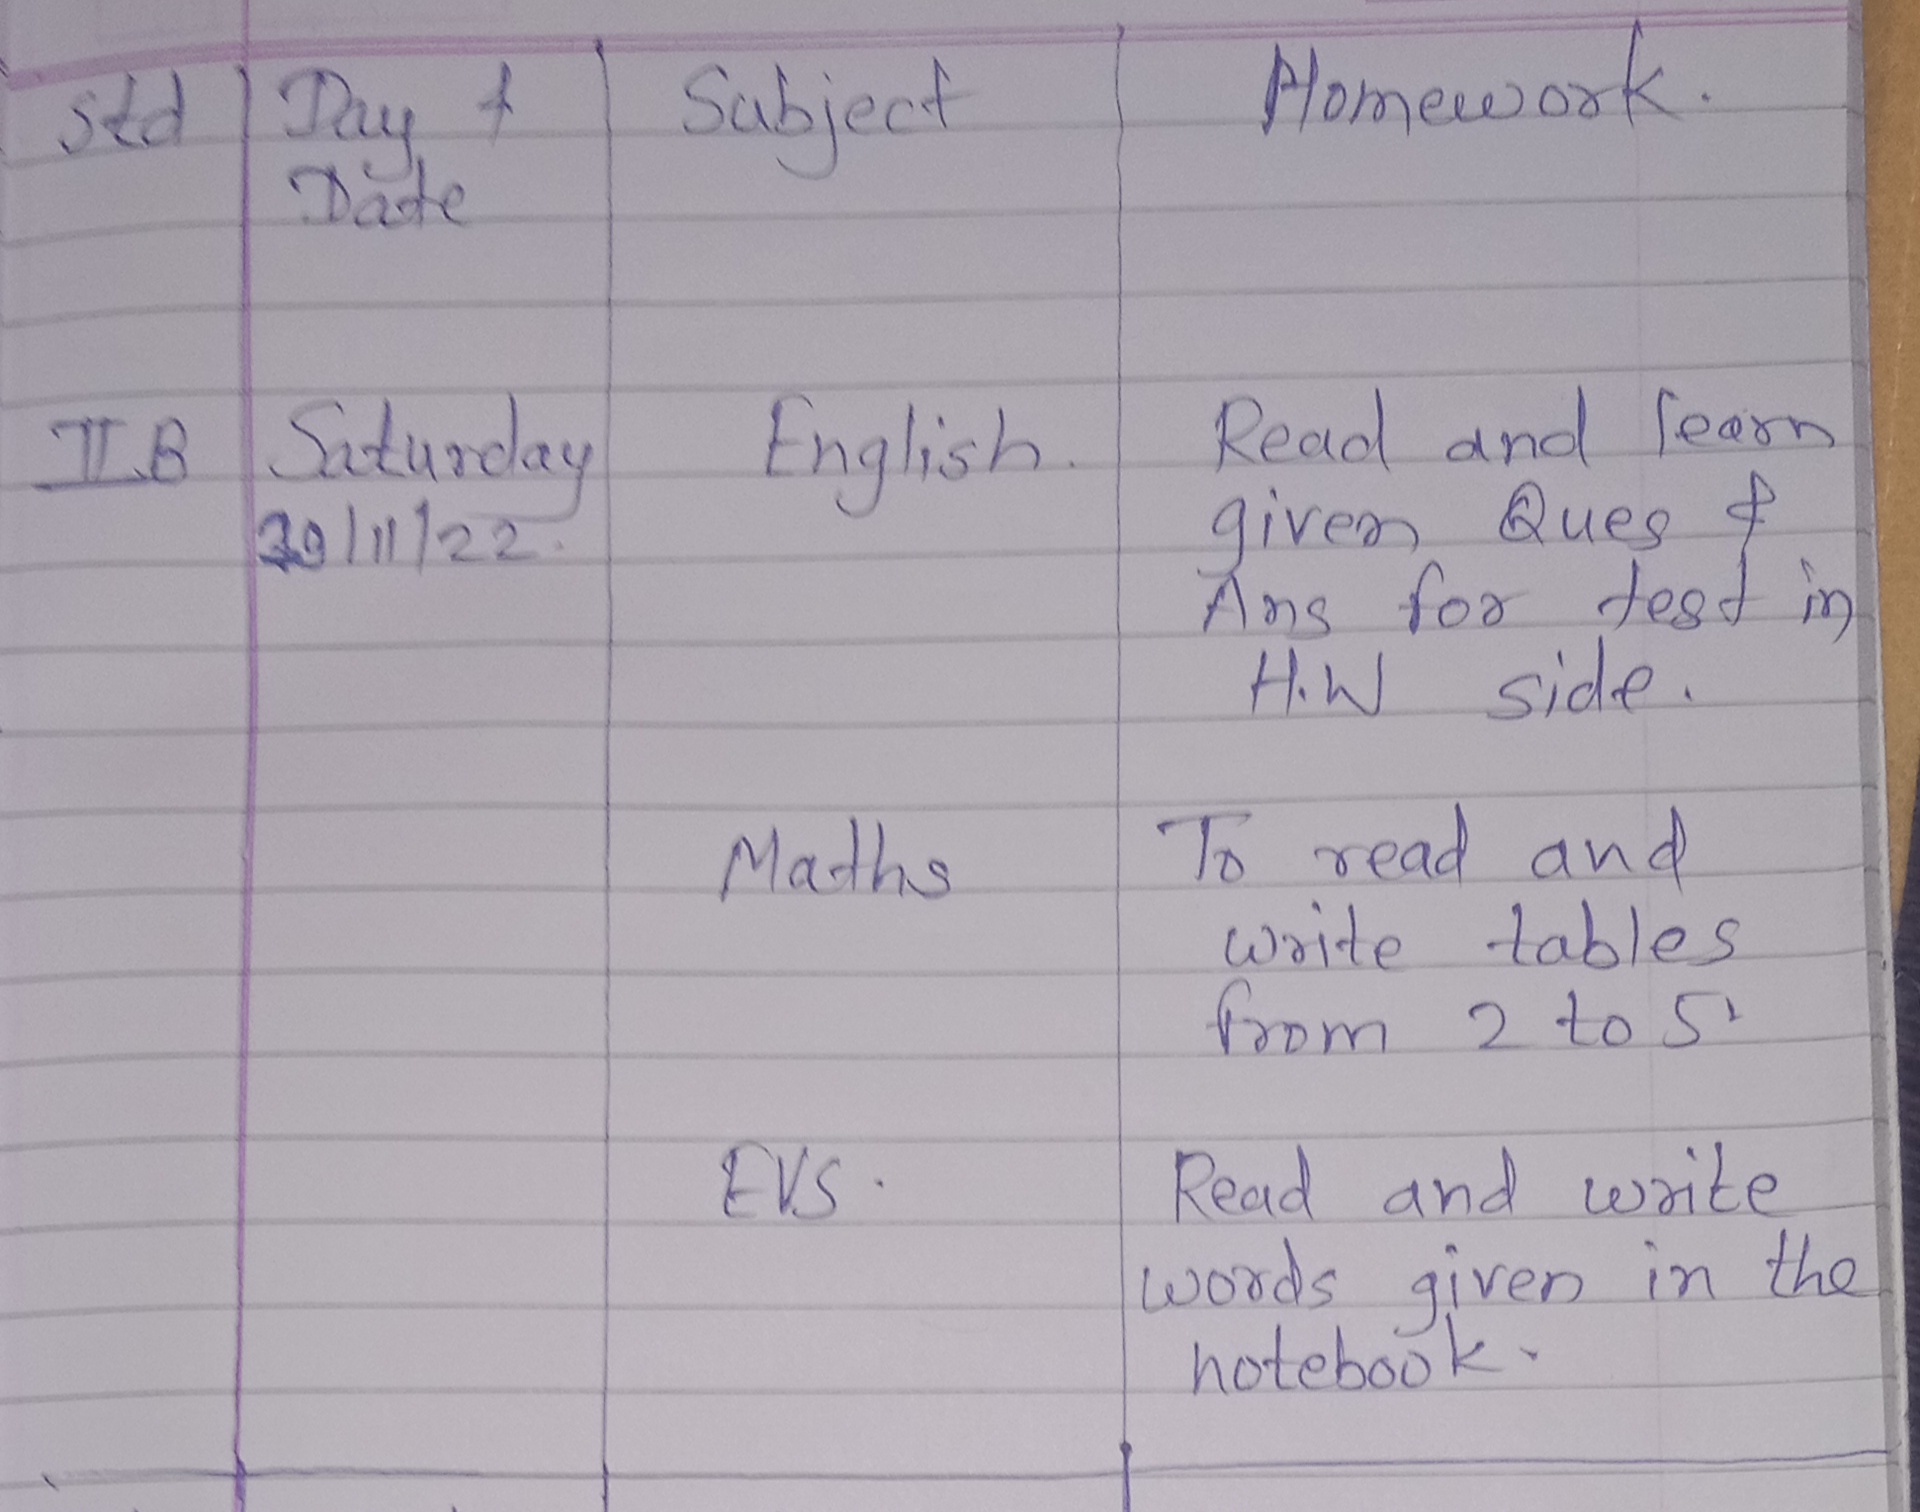 Std Day & Subject Homework.
Date
II B Saturday English. Read and learn
/11/22. given Ques &
Ans for test in
H.W side.
Maths To read and
write tables
from 2 to 5.
EVS. Read and write
words given in the
notebook.